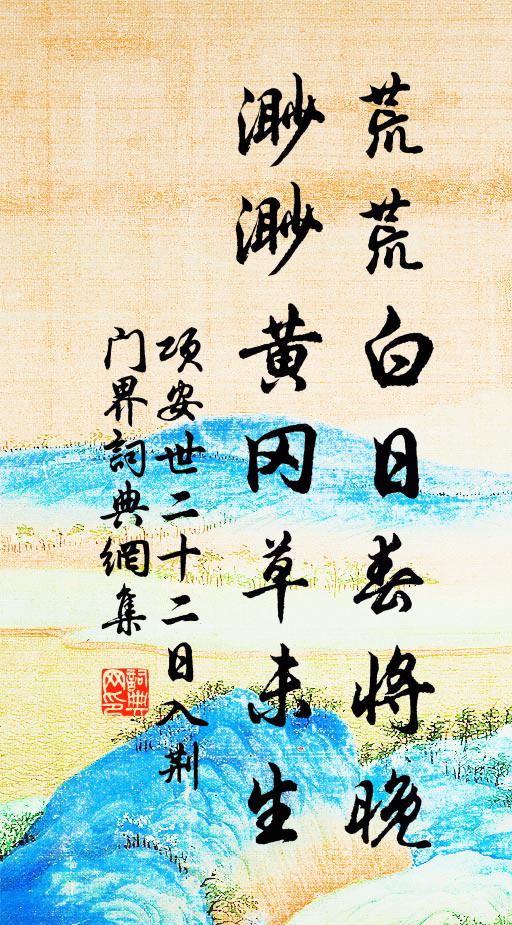 荒荒白日春将晚
渺渺黄冈草未生
项安世二十二日入荆
门界詞典網集
詞典
网印